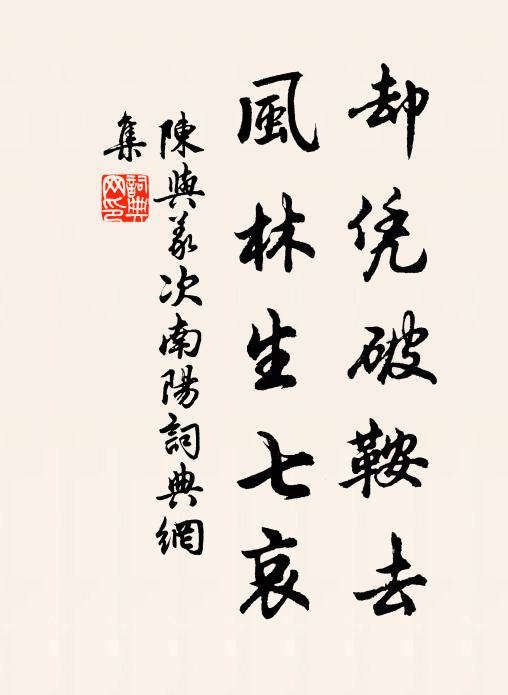 却凭破鞍去
風林生七哀
陳與義次南陽詞典網
集
詞典網印